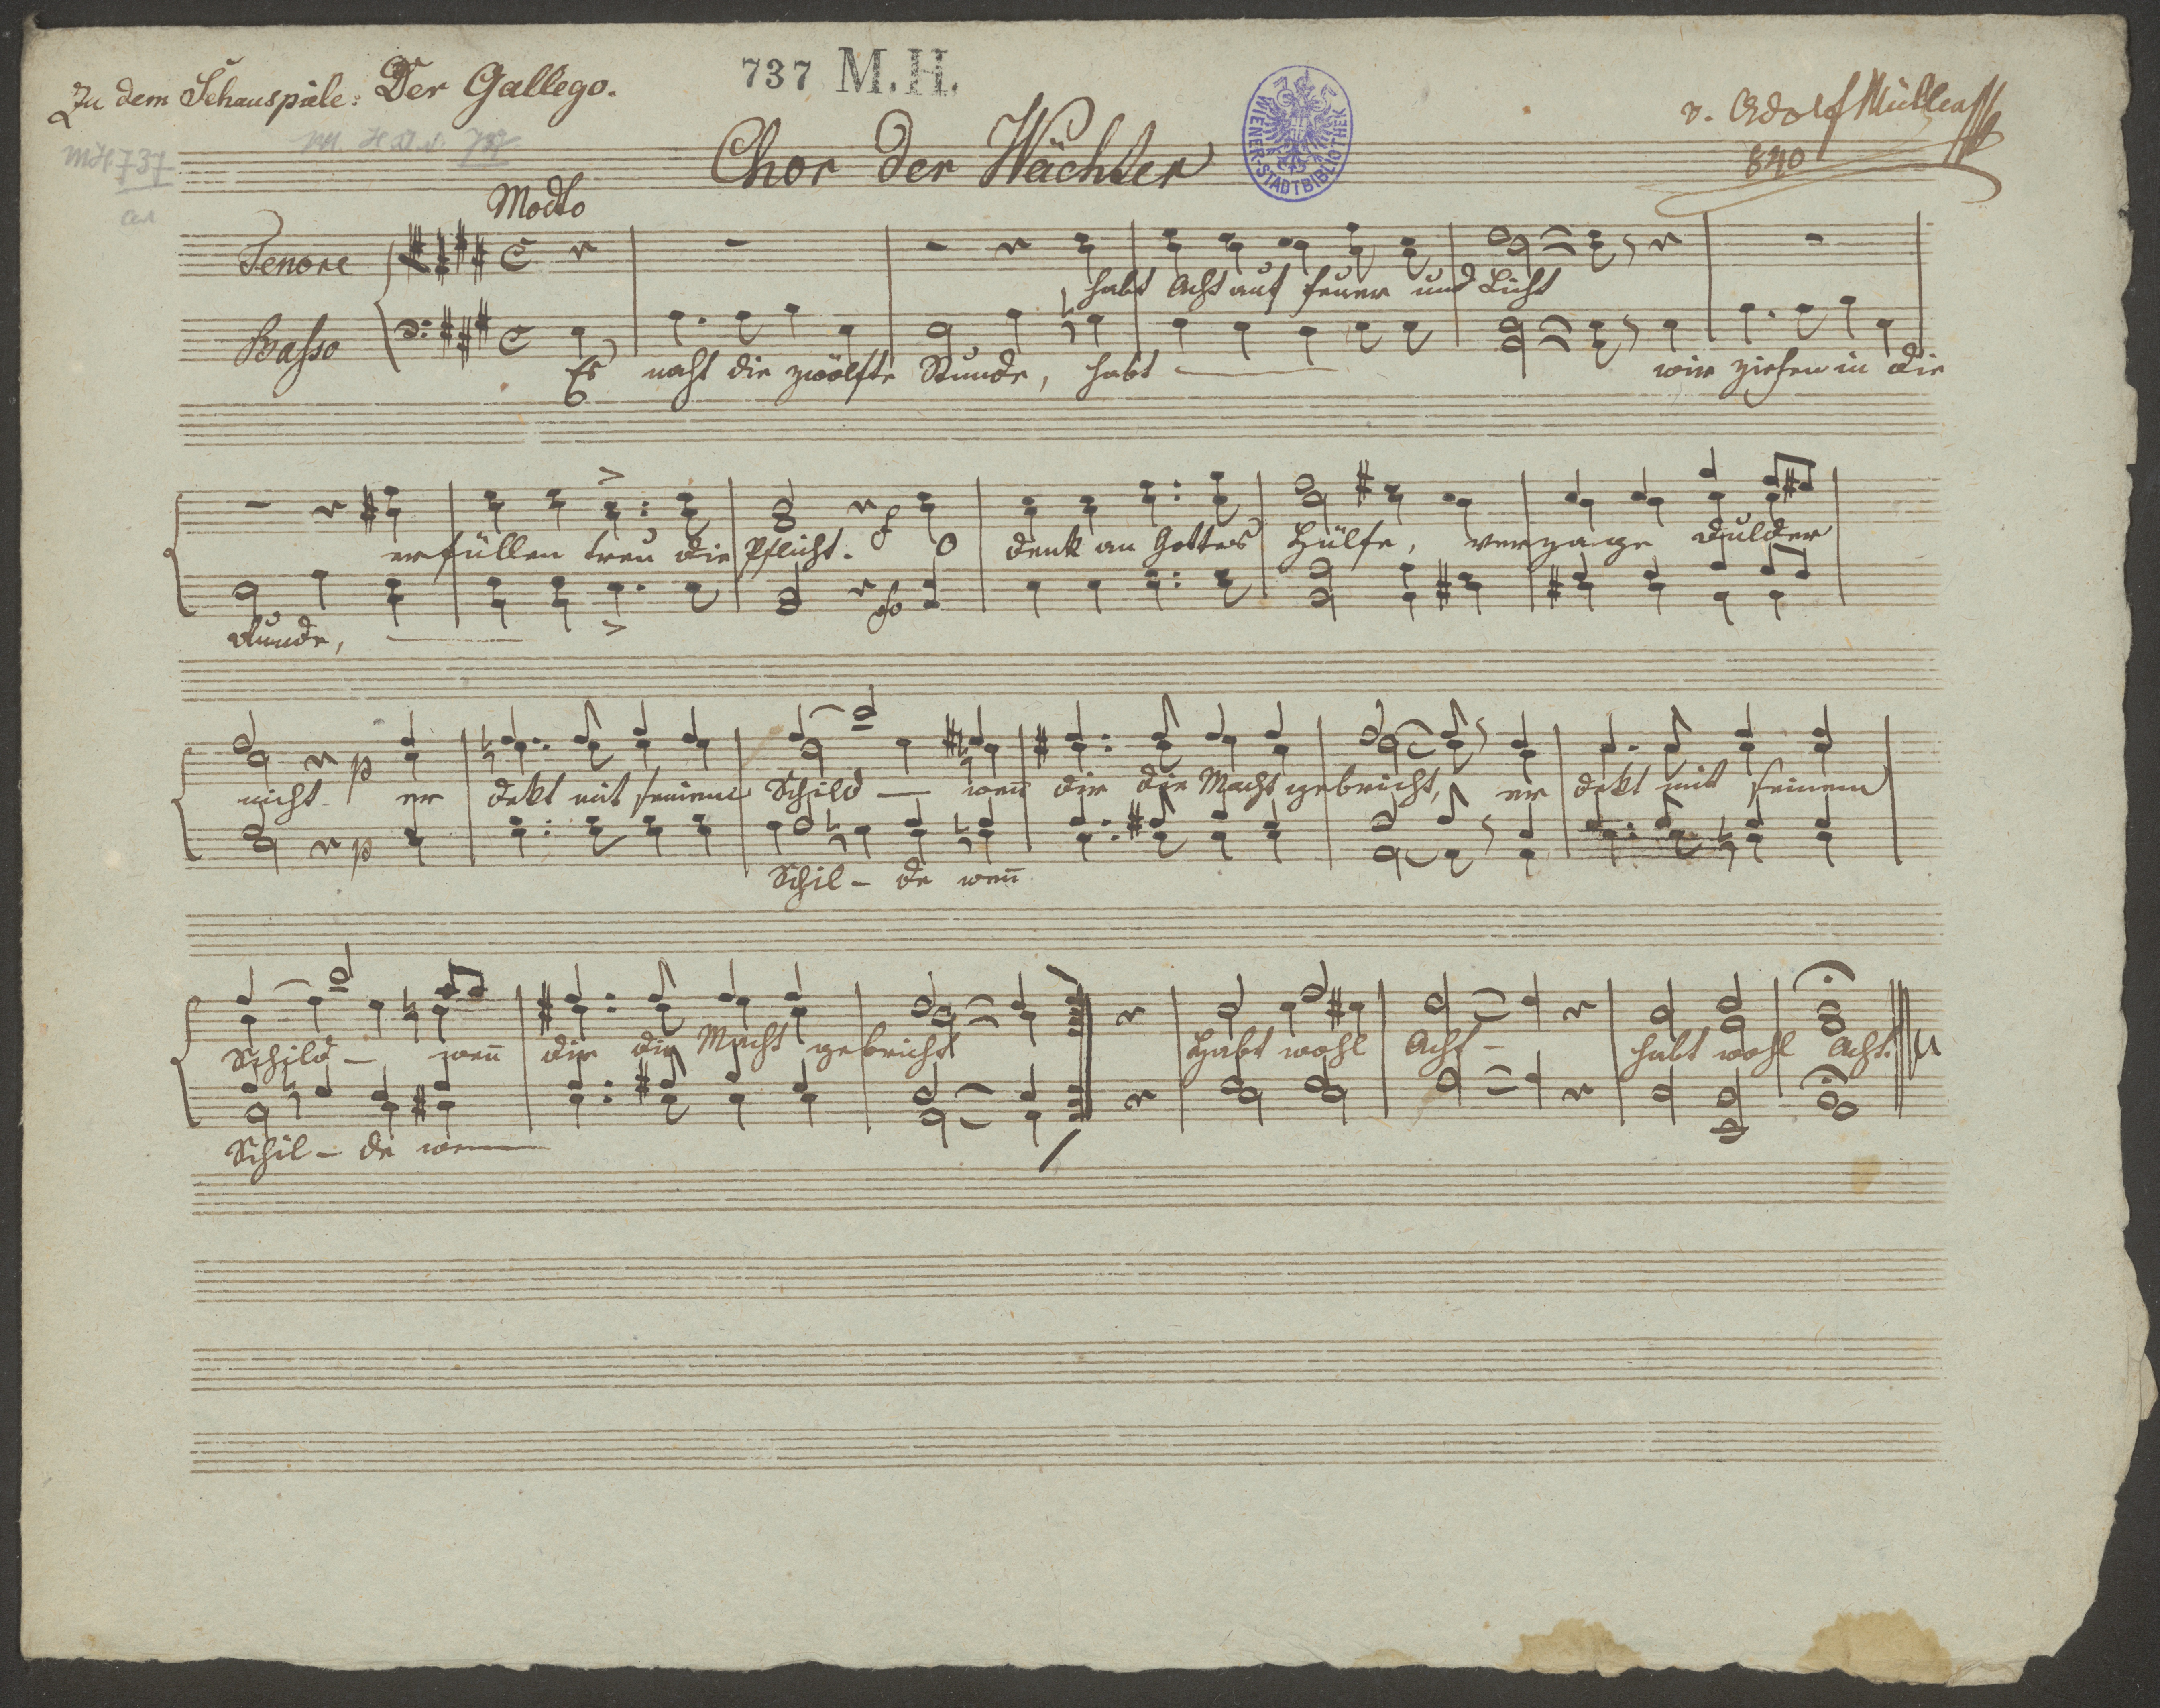 Zu dem Schauspiele: Der Gallego.
737 M.H.
v. Adolf Müller
840
MH 737
Chor der Wächter
WIENER-STADTBIBLIOTHEK
Modto
Tenore
habt Acht auf Feuer und Licht
Basso
Es naht die zwölfte Stunde, habt wir ziehen in die
erfüllen treu die Pflicht. O denk an Gottes Hülfe, verzage Dulder
Runde,
nicht er dekt mit seinem Schild – weñ dir die Macht gebricht, er dekt mit seinem
Schil – de weñ
Schild – weñ dir die Macht gebricht Habt wohl Acht – habt wohl Acht.
Schil – de wenn